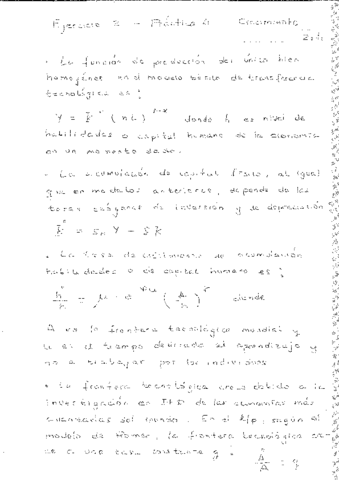 Ejercicio 2 - Práctica 4 Crecimiento
• La función de producción del único bien
homogéneo en el modelo básico de transferencia
tecnológica es:
Y = K^α (hL)^1-α donde h es nivel de
habilidades o capital humano de la economía
en un momento dado.
• La acumulación de capital físico, al igual
que en modelos anteriores, depende de las
tasas exógenas de inversión y de depreciación
K̇ = s_K Y - δK
• La tasa de crecimiento de acumulación
habilidades o de capital humano es:
ḣ/h = μ · e^ψu (A/h)^γ donde
A es la frontera tecnológica mundial y
u es el tiempo dedicado al aprendizaje y
no a trabajar por los individuos
• La frontera tecnológica crece debido a la
investigación en I+D de las economías más
avanzadas del mundo. En el l/p, según el
modelo de Romer, la frontera tecnológica cre-
ce a una tasa constante g: Ȧ/A = g